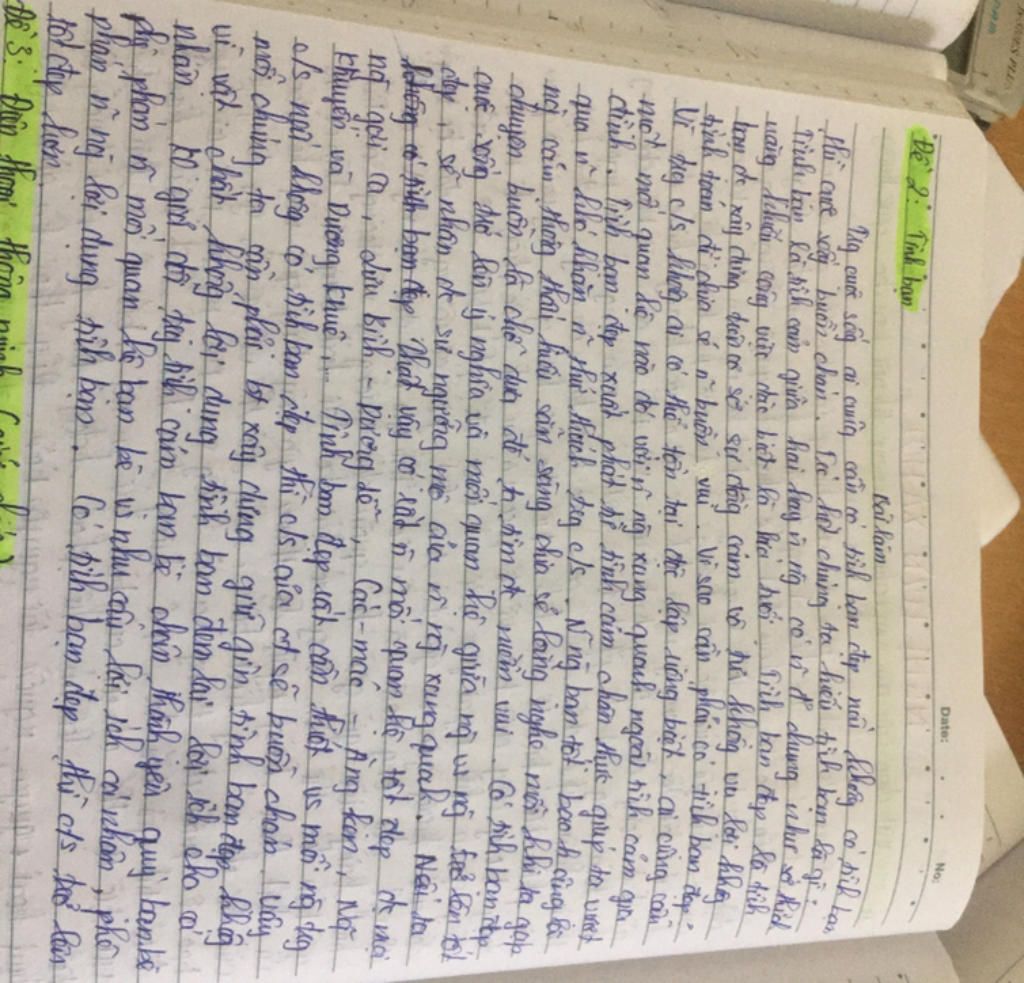 Date:
No:
Đề 2: Tình bạn
Bài làm
Trg cuộc sống ai cũng cần có tình bạn đẹp nếu không có tình bạn
thì cuộc sống buồn chán. Trc hết chúng ta hiểu tình bạn là gì.
Tình bạn là tình cảm giữa hai hay n ng có n đ chung như sở thích
bạn đc xây dựng trên cơ sở sự đồng cảm vô tư không vụ lợi không
tính toán để chia sẻ n buồn vui. Vì sao cần phải có tình bạn đẹp.
Vì trg c/s không ai có thể tồn tại độc lập riêng biệt, ai cũng cần
một mối quan hệ nào đó với n ng xung quanh ngoài tình cảm gia
đình. Tình bạn đẹp xuất phát từ tình cảm chân thực giúp ta vượt
qua n khó khăn n thử thách trg c/s. Nñg bạn tốt bao h cũng là
ng cảm thông thấu hiểu sẵn sàng chia sẻ lắng nghe mỗi khi ta gặp
chuyện buồn là chỗ dựa để ta tìm đc niềm vui. Có tình bạn đẹp
cuộc sống thở lên ý nghĩa và mối quan hệ giữa ng vs ng trở lên tốt
đẹp, sẽ nhận đc sự ngưỡng mộ của n ng xung quanh. Nếu ta
không có tình bạn đẹp Thật vậy có rất n mối quan hệ tốt đẹp đc mọi
ng gợi ca, Lưu Bình - Dương Lễ, Các-mác - Ăng ken, Ng
khuyến và Dương khuê,... Tình bạn đẹp rất cần thiết vs mỗi ng trg
c/s nếu không có tình bạn đẹp thì c/s của ct sẽ buồn chán vậy
mỗi chúng ta cần phải bt xây dựng giữ gìn tình bạn đẹp không
vì vật chất không lợi dụng tình bạn đem lại lợi ích cho cá
nhân. Tôi giới đối trg tình cảm bạn bè chân thành yêu quý bạn bè
phê phán n mối quan hệ bạn bè vì nhu cầu lợi ích cá nhân, phê
phán n ng lợi dụng tình bạn. Có tình bạn đẹp thì c/s trở lên
tốt đẹp hơn.
Đề 3: Điện thoại thông minh